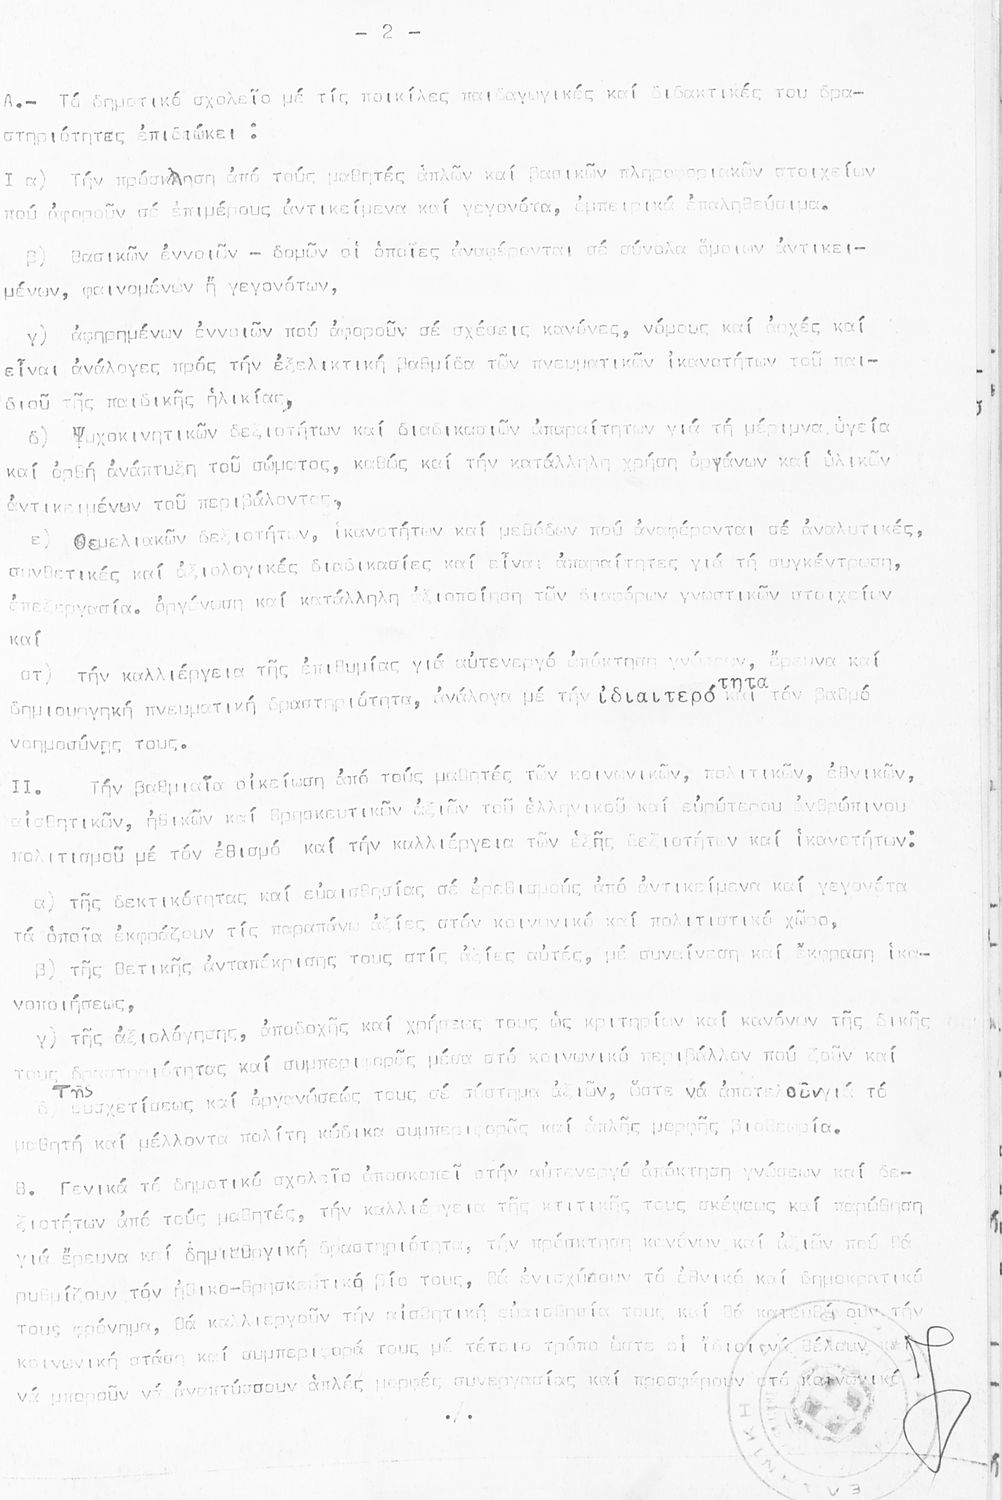 - 2 -
Α.- Τό δημοτικό σχολεῖο μέ τίς ποικίλες παιδαγωγικές καί διδακτικές του δρα-
στηριότητες ἐπιδιώκει :
Ι α) Τήν πρόσκληση ἀπό τούς μαθητές ἁπλῶν καί βασικῶν πληροφοριακῶν στοιχείων
πού ἀφοροῦν σέ ἐπιμέρους ἀντικείμενα καί γεγονότα, ἐμπειρικά ἐπαληθεύσιμα.
β) Βασικῶν ἐννοιῶν - δομῶν οἱ ὁποῖες ἀναφέρονται σέ σύνολα ὅμοιων ἀντικει-
μένων, φαινομένων ἤ γεγονότων,
γ) ἀφηρημένων ἐννοιῶν πού ἀφοροῦν σέ σχέσεις κανόνες, νόμους καί ἀρχές καί
εἶναι ἀνάλογες πρός τήν ἐξελικτική βαθμίδα τῶν πνευματικῶν ἱκανοτήτων τοῦ παι-
διοῦ τῆς παιδικῆς ἡλικίας,
δ) Ψυχοκινητικῶν δεξιοτήτων καί διαδικασιῶν ἀπαραίτητων γιά τή μέριμνα, ὑγεία
καί ὀρθή ἀνάπτυξη τοῦ σώματος, καθώς καί τήν κατάλληλη χρήση ὀργάνων καί ὑλικῶν
ἀντικειμένων τοῦ περιβάλοντος,
ε) Θεμελιακῶν δεξιοτήτων, ἱκανοτήτων καί μεθόδων πού ἀναφέρονται σέ ἀναλυτικές,
συνθετικές καί ἀξιολογικές διαδικασίες καί εἶναι ἀπαραίτητες γιά τή συγκέντρωση,
ἐπεξεργασία. ὀργάνωση καί κατάλληλη ἀξιοποίηση τῶν διαφόρων γνωστικῶν στοιχείων
καί
στ) τήν καλλιέργεια τῆς ἐπιθυμίας γιά αὐτενεργό ἀπόκτηση γνώσεων, ἔρευνα καί
δημιουργηκή πνευματική δραστηριότητα, ἀνάλογα μέ τήν ἰδιαιτερότητα καί τόν βαθμό
νοημοσύνης τους.
ΙΙ. Τήν βαθμιαῖα οἰκείωση ἀπό τούς μαθητές τῶν κοινωνικῶν, πολιτικῶν, ἐθνικῶν,
αἰσθητικῶν, ἠθικῶν καί θρησκευτικῶν ἀξιῶν τοῦ ἑλληνικοῦ καί εὐρύτερου ἀνθρώπινου
πολιτισμοῦ μέ τόν ἐθισμό καί τήν καλλιέργεια τῶν ἑξῆς δεξιοτήτων καί ἱκανοτήτων:
α) τῆς δεκτικότητας καί εὐαισθησίας σέ ἐρεθισμούς ἀπό ἀντικείμενα καί γεγονότα
τά ὁποῖα ἐκφράζουν τίς παραπάνω ἀξίες στόν κοινωνικό καί πολιτιστικό χῶρο,
β) τῆς θετικῆς ἀνταπόκρισης τους στίς ἀξίες αὐτές, μέ συναίνεση καί ἔκφραση ἱκα-
νοποιήσεως,
γ) τῆς ἀξιολόγησης, ἀποδοχῆς καί χρήσεως τους ὡς κριτηρίων καί κανόνων τῆς δικῆς
τους δραστηριότητας καί συμπεριφορᾶς μέσα στό κοινωνικό περιβάλλον πού ζοῦν καί
δ) Τῆς συσχετίσεως καί ὀργανώσεώς τους σέ σύστημα ἀξιῶν, ὥστε νά ἀποτελοῦν γιά τό
μαθητή καί μέλλοντα πολίτη κώδικα συμπεριφορᾶς καί ἁπλῆς μορφῆς βιοθεωρία.
Β. Γενικά τό δημοτικό σχολεῖο ἀποσκοπεῖ στήν αὐτενεργό ἀπόκτηση γνώσεων καί δε-
ξιοτήτων ἀπό τούς μαθητές, τήν καλλιέργεια τῆς κτιτικῆς τους σκέψεως καί παρώθηση
γιά ἔρευνα καί δημιουργική δραστηριότητα, τήν πρόσκτηση κανόνων καί ἀξιῶν πού θά
ρυθμίζουν τόν ἠθικο-θρησκευτικό βίο τους, θά ἐνισχύσουν τό ἐθνικό καί δημοκρατικό
τους φρόνημα, θά καλλιεργοῦν τήν αἰσθητική εὐαισθησία τους καί θά κατευθύνουν τήν
κοινωνική στάση καί συμπεριφορά τους μέ τέτοιο τρόπο ὥστε οἱ ἴδιοι νά θέλουν καί
νά μποροῦν νά ἀναπτύσσουν ἁπλές μορφές συνεργασίας καί προσφέρουν στό κοινωνικό
./.
ΕΛΛΗΝΙΚΗ